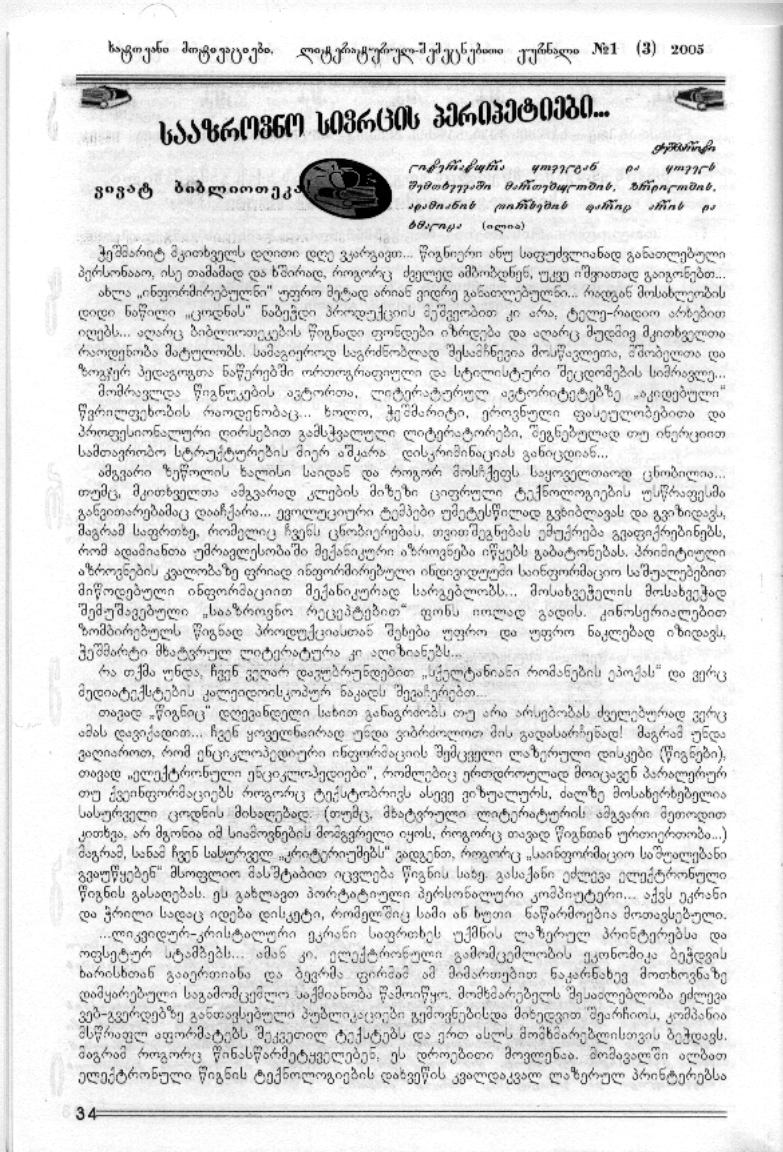 ხატოვანი მოტივაციები, ლიტერატურულ-შემეცნებითი ჟურნალი №1 (3) 2005
სააზროვნო სივრცის პერიპეტიები...
ჭეშმარიტი
ლიტერატურა ყოველგან და ყოველს
ვივატ ბიბლიოთეკა!
შემთხვევაში მართებულობის, ზრდილობის,
ადამიანის ღირსების ფარიდ არის და
ხმალიდა (ილია)
ჭეშმარიტ მკითხველს დღითი დღე ვკარგავთ... წიგნიერი ანუ საფუძვლიანად განათლებული
პერსონააო, ისე თამამად და ხშირად, როგორც ძველედ ამბობდნენ, უკვე იშვიათად გაიგონებთ...
ახლა „ინფორმირებულნი“ უფრო მეტად არიან ვიდრე განათლებულნი... რადგან მოსახლეობის
დიდი ნაწილი „ცოდნას“ ნაბეჭდი პროდუქციის მეშვეობით კი არა, ტელე-რადიო არხებით
იღებს... აღარც ბიბლიოთეკების წიგნადი ფონდები იზრდება და აღარც მუდმივ მკითხველთა
რაოდენობა მატულობს. სამაგიეროდ საგრძნობლად შესამჩნევია მოსწავლეთა, მშობელთა და
ზოგჯერ პედაგოგთა ნაწერებში ორთოგრაფიული და სტილისტური შეცდომების სიმრავლე...
მომრავლდა წიგნუკების ავტორთა, ლიტერატურულ ავტორიტეტებზე „აკიდებული“
წვრილფეხობის რაოდენობაც... ხოლო, ჭეშმარიტი, ეროვნული ფასეულობებითა და
პროფესიონალური ღირსებით გამსჭვალული ლიტერატორები, შეგნებულად თუ ინერციით
სამთავრობო სტრუქტურების მიერ აშკარა დისკრიმინაციას განიცდიან...
ამგვარი ზეწოლის ხალისი საიდან და როგორ მოსჩქეფს საყოველთაოდ ცნობილია...
თუმც, მკითხველთა ამგვარად კლების მიზეზი ციფრული ტექნოლოგიების უსწრაფესმა
განვითარებამაც დააჩქარა... ევოლუციური ტემპები უმეტესწილად გვხიბლავას და გვიზიდავს,
მაგრამ საფრთხე, რომელიც ჩვენს ცნობიერებას, თვითშეგნებას ემუქრება გვაფიქრებინებს,
რომ ადამიანთა უმრავლესობაში მექანიკური აზროვნება იწყებს გაბატონებას. პრიმიტიული
აზროვნების კვალობაზე ფრიად ინფორმირებული ინდივიდუუმი საინფორმაციო საშუალებებით
მიწოდებული ინფორმაციით მექანიკურად სარგებლობს... მოსახვეჭელის მოსახვეჭად
შემუშავებული „სააზროვნო რეცეპტებით“ ფონს იოლად გადის. კინოსერიალებით
ზომბირებულს წიგნად პროდუქციასთან შეხება უფრო და უფრო ნაკლებად იზიდავს,
ჭეშმარტი მხატვრულ ლიტერატურა კი აღიზიანებს...
რა თქმა უნდა, ჩვენ ველარ დავუბრუნდებით „სქელტანიანი რომანების ეპოქას“ და ვერც
მედიატექსტების კალეიდოისკოპურ ნაკადს შევაჩერებთ...
თავად „წიგნიც“ დღევანდელი სახით განაგრძობს თუ არა არსებობას ძველებურად ვერც
ამას დავიქადით... ჩვენ ყოველნაირად უნდა ვიბრძოლოთ მის გადასარჩენად! მაგრამ უნდა
ვაღიაროთ, რომ ენციკლოპედიური ინფორმაციის შემცველი ლაზერული დისკები (წიგნები),
თავად „ელექტრონული ენციკლოპედიები“, რომლებიც ერთდროულად მოიცავენ პარალერურ
თუ ქვეინფორმაციებს როგორც ტექსტობრივს ასევე ვიზუალურს, ძალზე მოსახერხებელია
სასურველი ცოდნის მისაღებად. (თუმც, მხატვრული ლიტერატურის ამგვარი მეთოდით
კითხვა, არ მგონია იმ სიამოვნების მომგვრელი იყოს, როგორც თავად წიგნთან ურთიერთობა...)
მაგრამ, სანამ ჩვენ სასურველ „კრიტერიუმებს“ ვადგენთ, როგორც „საინფორმაციო საშუალებანი
გვაუწყებენ“ მსოფლიო მასშტაბით იცვლება წიგნის სახე. გასაქანი ეძლევა ელექტრონული
წიგნის გასაღებას. ეს გახლავთ პორტატიული პერსონალური კომპიუტერი... აქვს ეკრანი
და ჭრილი სადაც იდება დისკეტი, რომელშიც სამი ან ხუთი ნაწარმოებია მოთავსებული.
...ლიკვიდურ-კრისტალური ეკრანი საფრთხეს უქმნის ლაზერულ პრინტერებსა და
ოფსეტურ სტამბებს... ამან კი, ელექტრონული გამომცემლობის ეკონომიკა ბეჭდვის
ხარისხთან გააერთიანა და ბევრმა ფირმამ ამ მიმართებით ნაკარნახევ მოთხოვნაზე
დამყარებული საგამომცემლო საქმიანობა წამოიწყო. მომხმარებელს შესაძლებლობა ეძლევა
ვებ-გვერდებზე განთავსებული პუბლიკაციები გემოვნებისდა მიხედვით შეარჩიოს, კომპანია
მსწრაფლ აფორმატებს შეკვეთილ ტექსტებს და ერთ ასლს მომხმარებლისთვის ბეჭდავს.
მაგრამ როგორც წინასწარმეტყველებენ, ეს დროებითი მოვლენაა. მომავალში ალბათ
ელექტრონული წიგნის ტექნოლოგიების დახვეწის კვალდაკვალ ლაზერულ პრინტერებსა
34